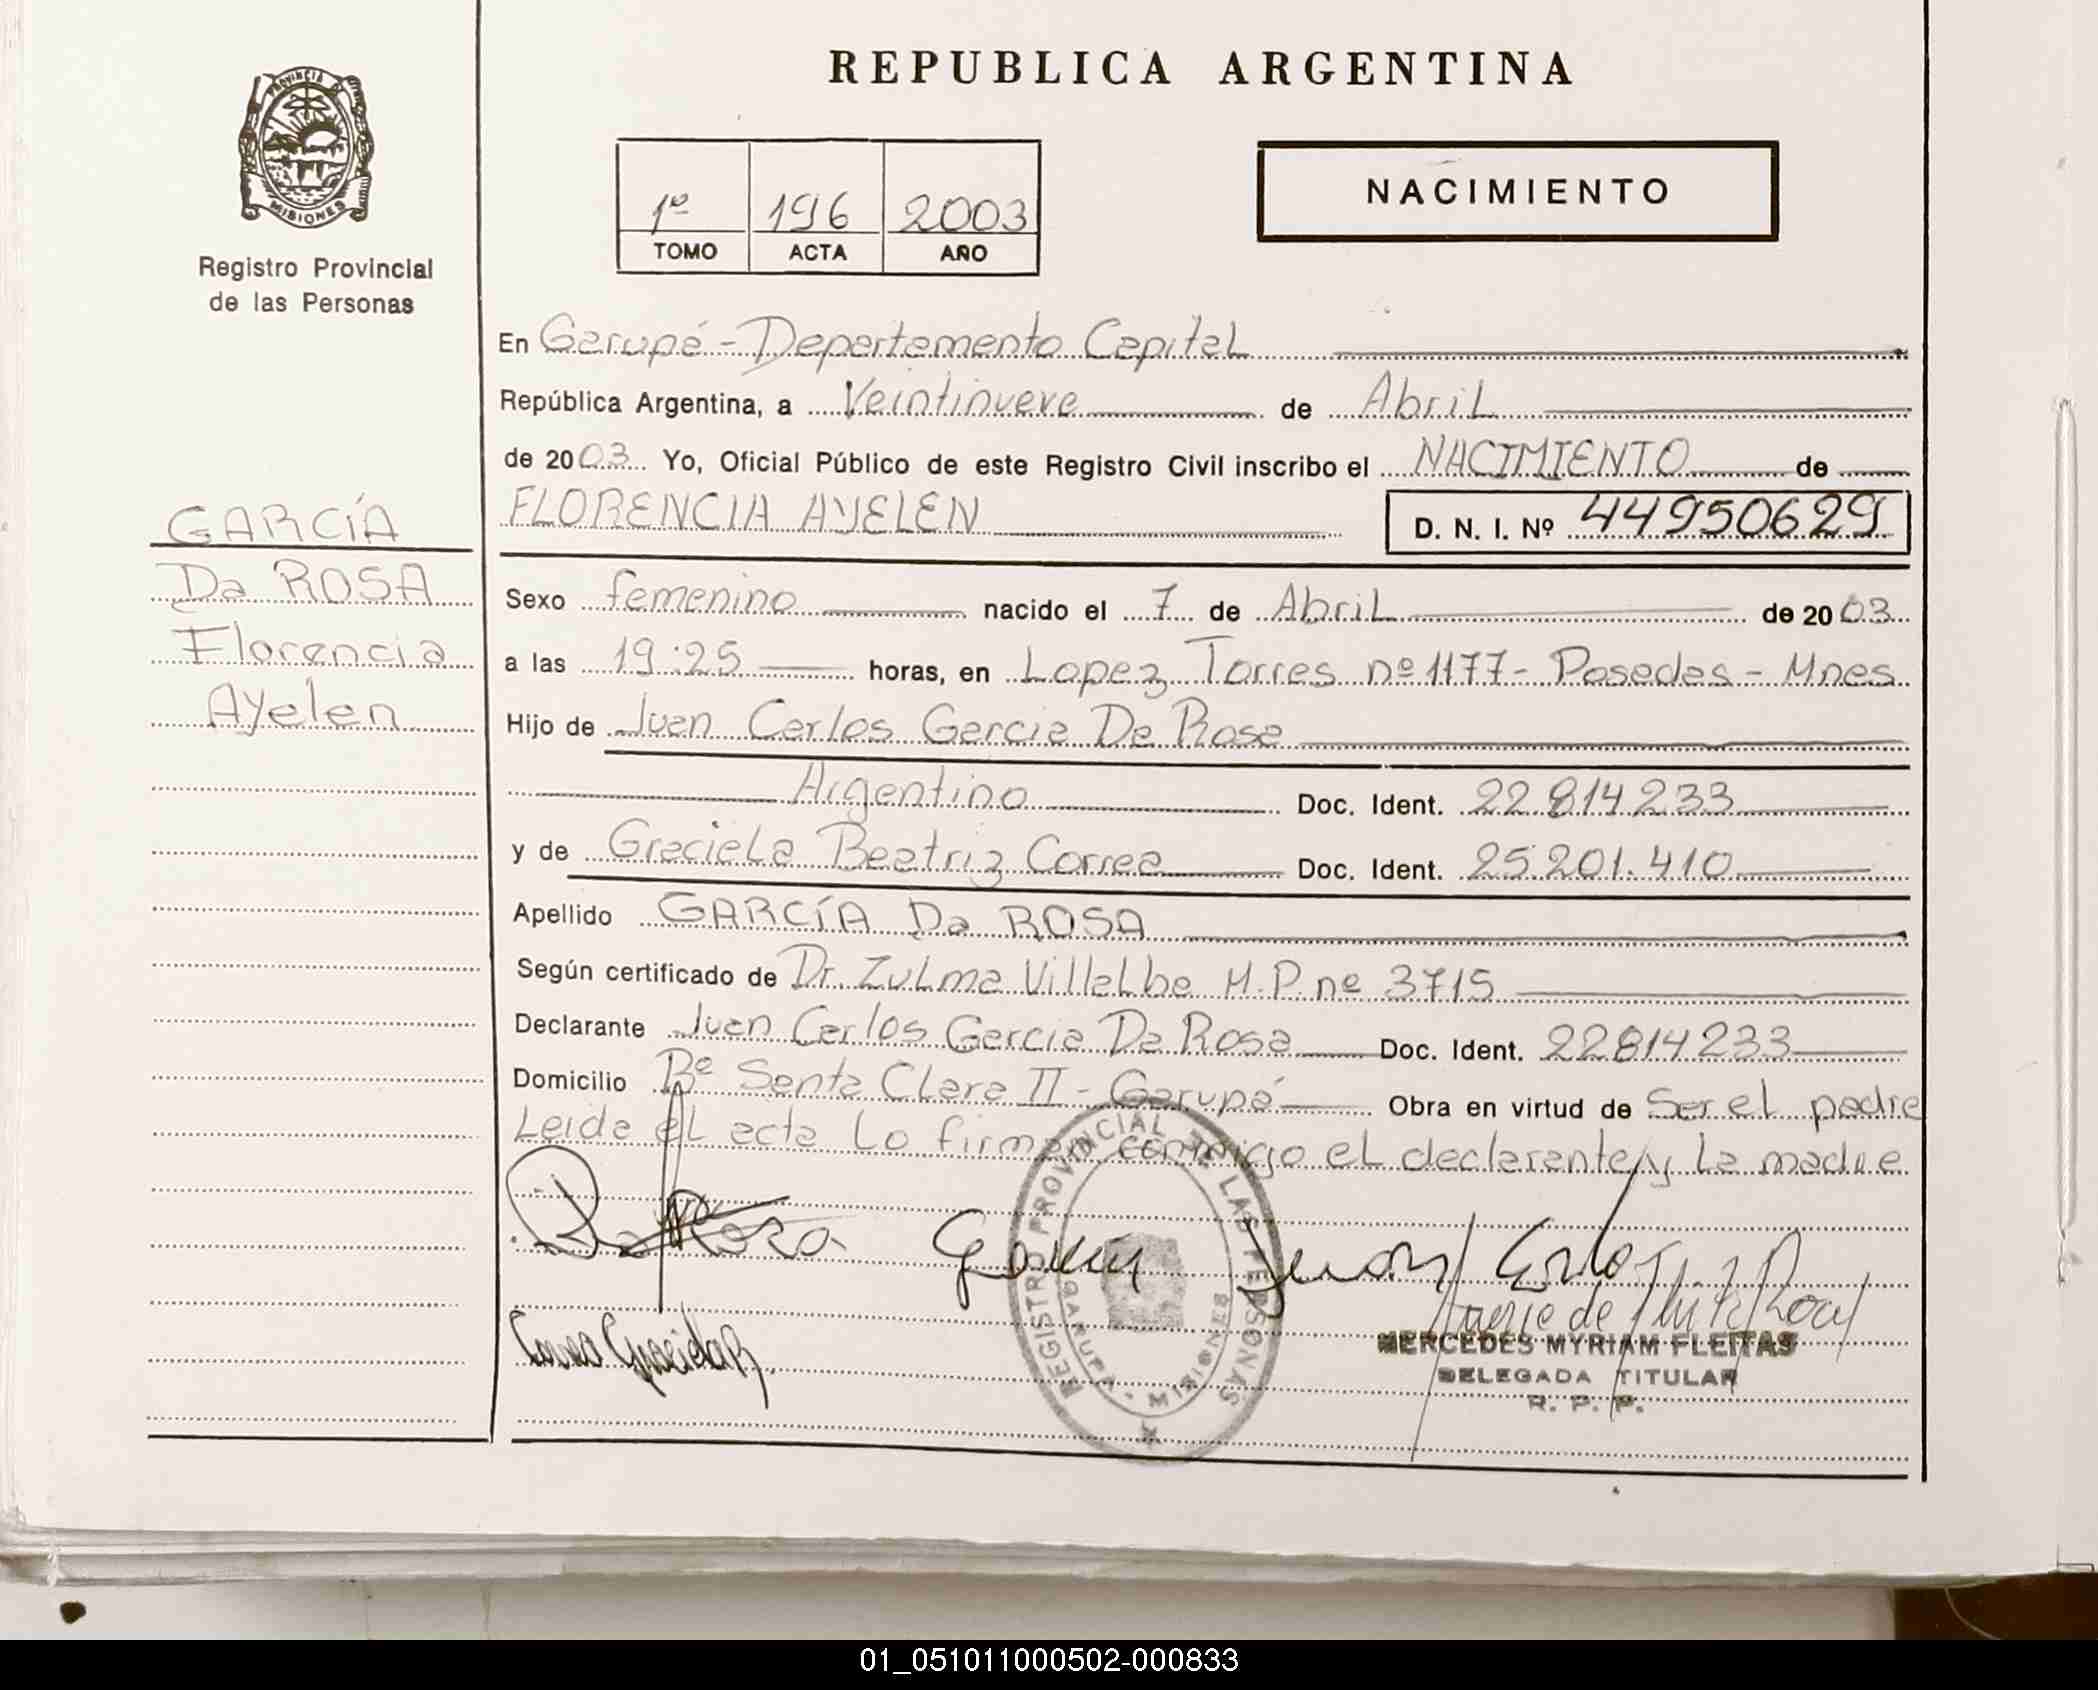 PROVINCIA
MISIONES
Registro Provincial
de las Personas
GARCÍA
Da ROSA
Florencia
Ayelen
REPUBLICA ARGENTINA
1º 196 2003
TOMO ACTA AÑO
NACIMIENTO
En Garupá - Departamento Capital
República Argentina, a Veintinueve de Abril
de 2003 Yo, Oficial Público de este Registro Civil inscribo el NACIMIENTO de
FLORENCIA AYELEN D. N. I. Nº 44950629
Sexo femenino nacido el 7 de Abril de 2003
a las 19:25 horas, en Lopez Torres nº 1177 - Posadas - Mnes
Hijo de Juan Carlos Garcia Da Rosa
Argentino Doc. Ident. 22814233
y de Graciela Beatriz Correa Doc. Ident. 25.201.410
Apellido GARCÍA Da ROSA
Según certificado de Dr. Zulma Villalba M.P. nº 3715
Declarante Juan Carlos Garcia Da Rosa Doc. Ident. 22814233
Domicilio Bº Santa Clara II - Garupá Obra en virtud de Ser el padre
Leida el acta lo firman conmigo el declarante y la madre
Da Rosa Garcia Juan Carlos
Correa Graciela B.
REGISTRO PROVINCIAL DE LAS PERSONAS
GARUPA - MISIONES
MERCEDES MYRIAM FLEITAS
DELEGADA TITULAR
R. P. P.
01_051011000502-000833